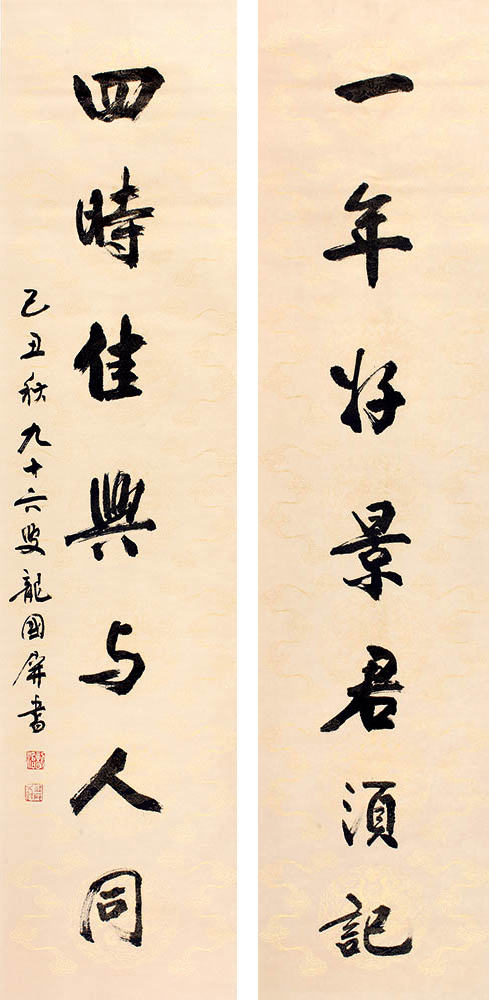 一年好景君須記
四時佳興与人同
己丑秋九十六叟龍國屏書